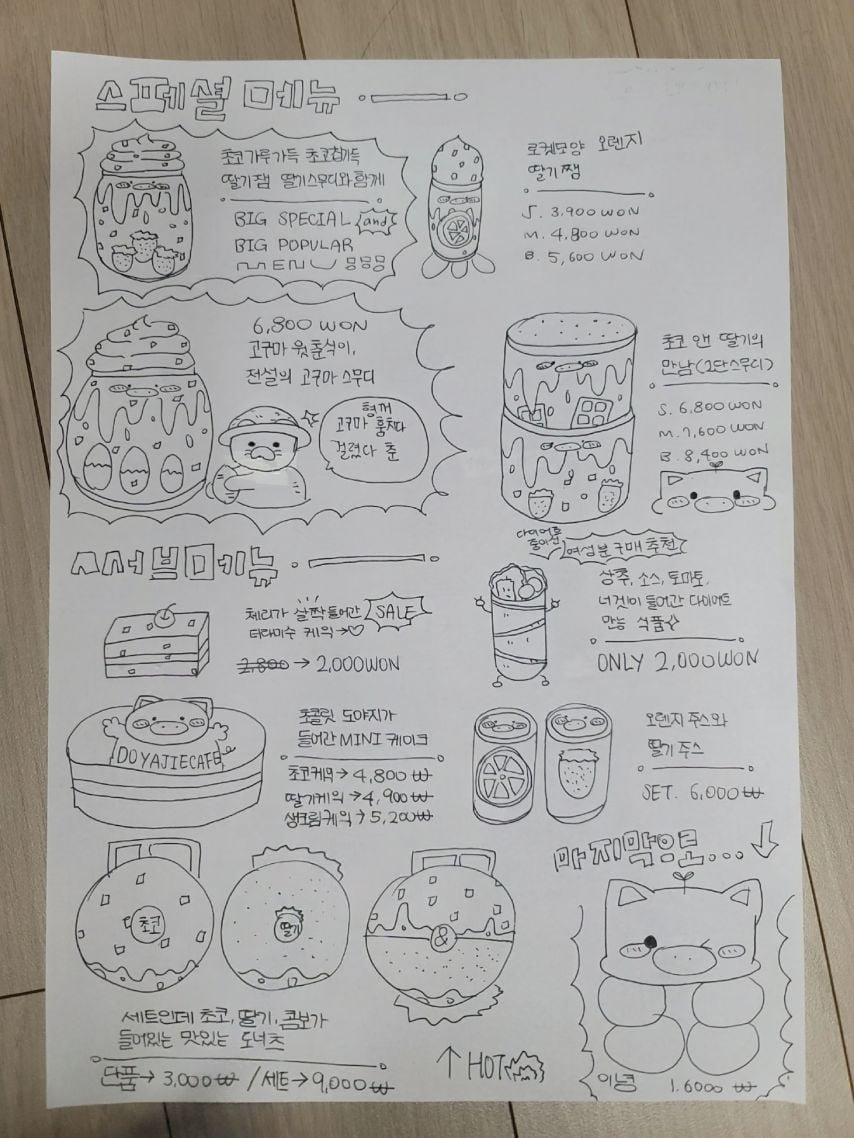 스페셜 메뉴
초코가루가득 초코칩가득
딸기잼 딸기스무디와 함께
BIG SPECIAL and
BIG POPULAR
MENU 뭉뭉뭉
로켓모양 오렌지
딸기쨈
S. 3,900 WON
M. 4,800 WON
B. 5,600 WON
6,800 WON
고구마
전설의 고구마 스무디
형꺼
고구마 훔치다
걸렸다 춘
초코 앤 딸기의
만남(2단스무디)
S. 6,800 WON
M. 7,600 WON
B. 8,400 WON
ㅅ써브메뉴
체리가 살짝들어간 SALE
티라미수 케익→♡
2,800 → 2,000WON
다이어트
여성분 구매 추천
상추, 소스, 토마토,
너겟이 들어간 다이어트
만능 식품
ONLY 2,000WON
DOYAJIECAFE
초콜릿 도야지가
들어간 MINI 케이크
초코케익→4,800₩
딸기케익→4,900₩
생크림케익→5,200₩
오렌지 주스와
딸기 주스
SET. 6,000₩
초코
딸기
&
세트인데 초코, 딸기, 콤보가
들어있는 맛있는 도너츠
단품→ 3,000₩ / 세트→ 9,000₩
↑ HOT
마지막으로...↓
이녕 1.6000 ₩